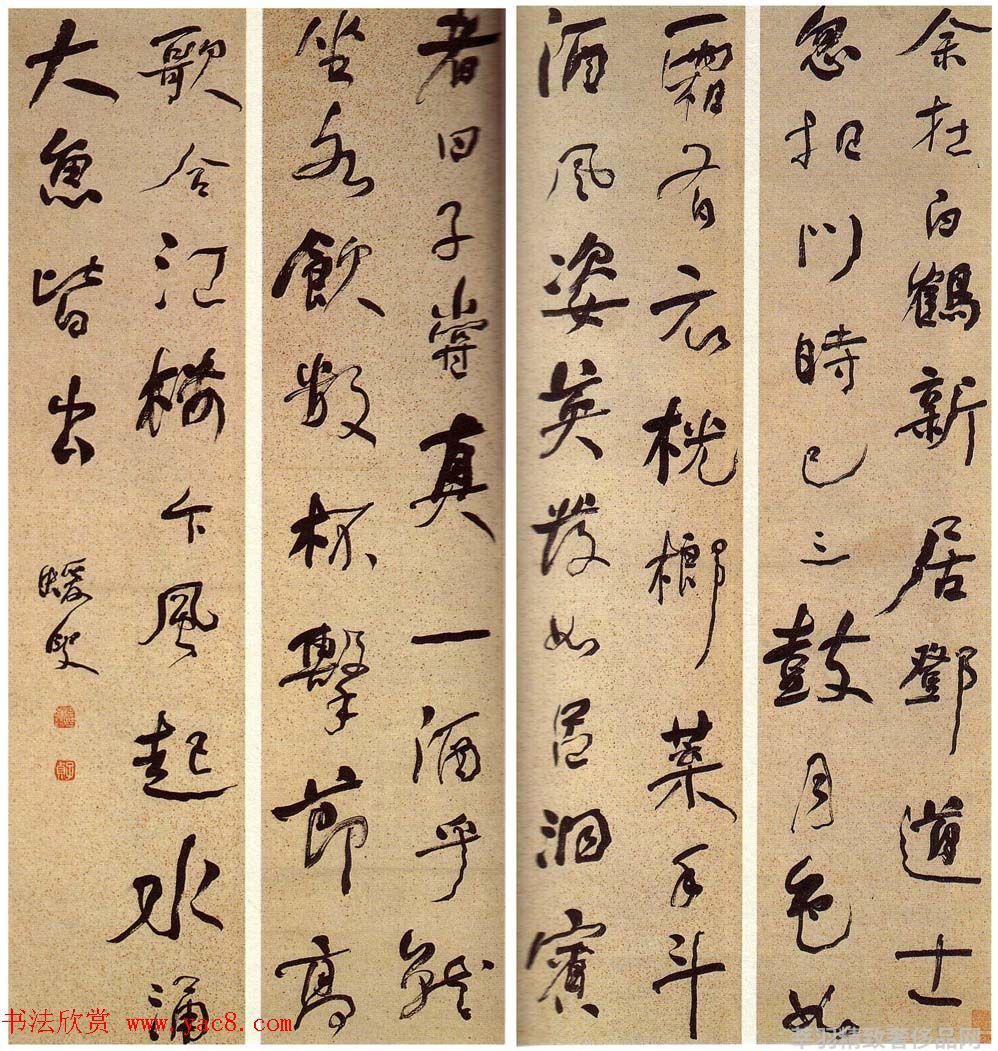 余在白鶴新居鄧道士
忽扣門時已三鼓月色如
霜有衣桄榔葉手斗
酒風姿英發如呂洞賓
者曰子嘗真一酒乎就
坐各飲數杯擊節高
歌合江橋下風起水涌
大魚皆出
蝯叟
书法欣赏 www.yac8.com